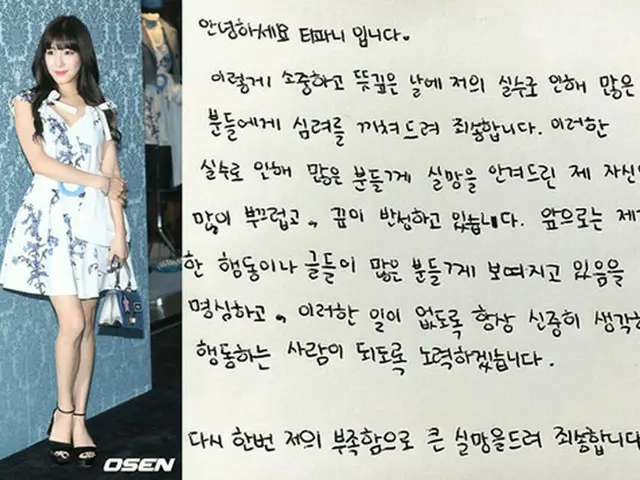 안녕하세요 티파니 입니다.
이렇게 소중하고 뜻깊은 날에 저의 실수로 인해 많은
분들에게 심려를 끼쳐드려 죄송합니다. 이러한
실수로 인해 많은 분들께 실망을 안겨드린 제 자신이
많이 부끄럽고, 깊이 반성하고 있습니다. 앞으로는 제가
한 행동이나 글들이 많은 분들께 보여지고 있음을
명심하고, 이러한 일이 없도록 항상 신중히 생각하
행동하는 사람이 되도록 노력하겠습니다.
다시 한번 저의 부족함으로 큰 실망을드려 죄송합니다
OSEN